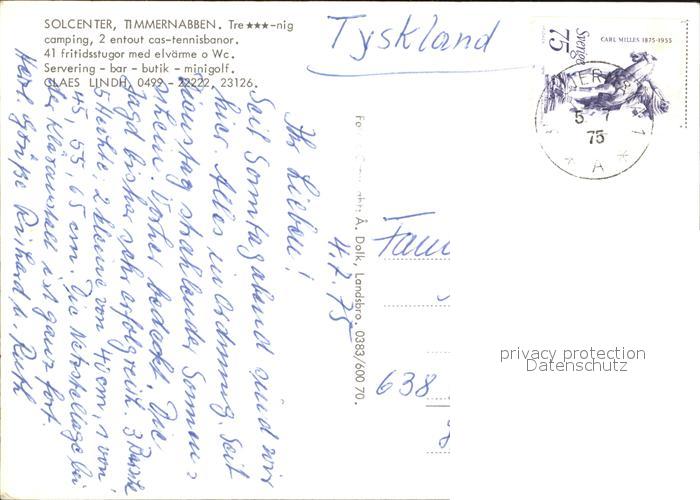 SOLCENTER, TIMMERNABBEN. Tre★★★-nig
camping, 2 entout cas-tennisbanor.
41 fritidsstugor med elvärme o Wc.
Servering - bar - butik - minigolf.
CLAES LINDH, 0499 - 22222, 23126.
Tyskland
Sverige
75
CARL MILLES 1875-1955
5 7
75
* A *
4.7.75
Ihr Lieben!
Seit Sonntagabend sind wir
hier. Alles in Ordnung. Seit
Dienstag strahlender Sonnen-
schein. Vorher bedeckt. Die
Jagd bisher sehr erfolgreich. 3
Hechte, 2 kleine von 40 cm, 1 von
45, 55, 65 cm. Die
ist ganz fort.
Herzl. Grüße Richard u. Ruth
Å. Dalk, Landsbro. 0383/600 70.
Fam
638
privacy protection
Datenschutz